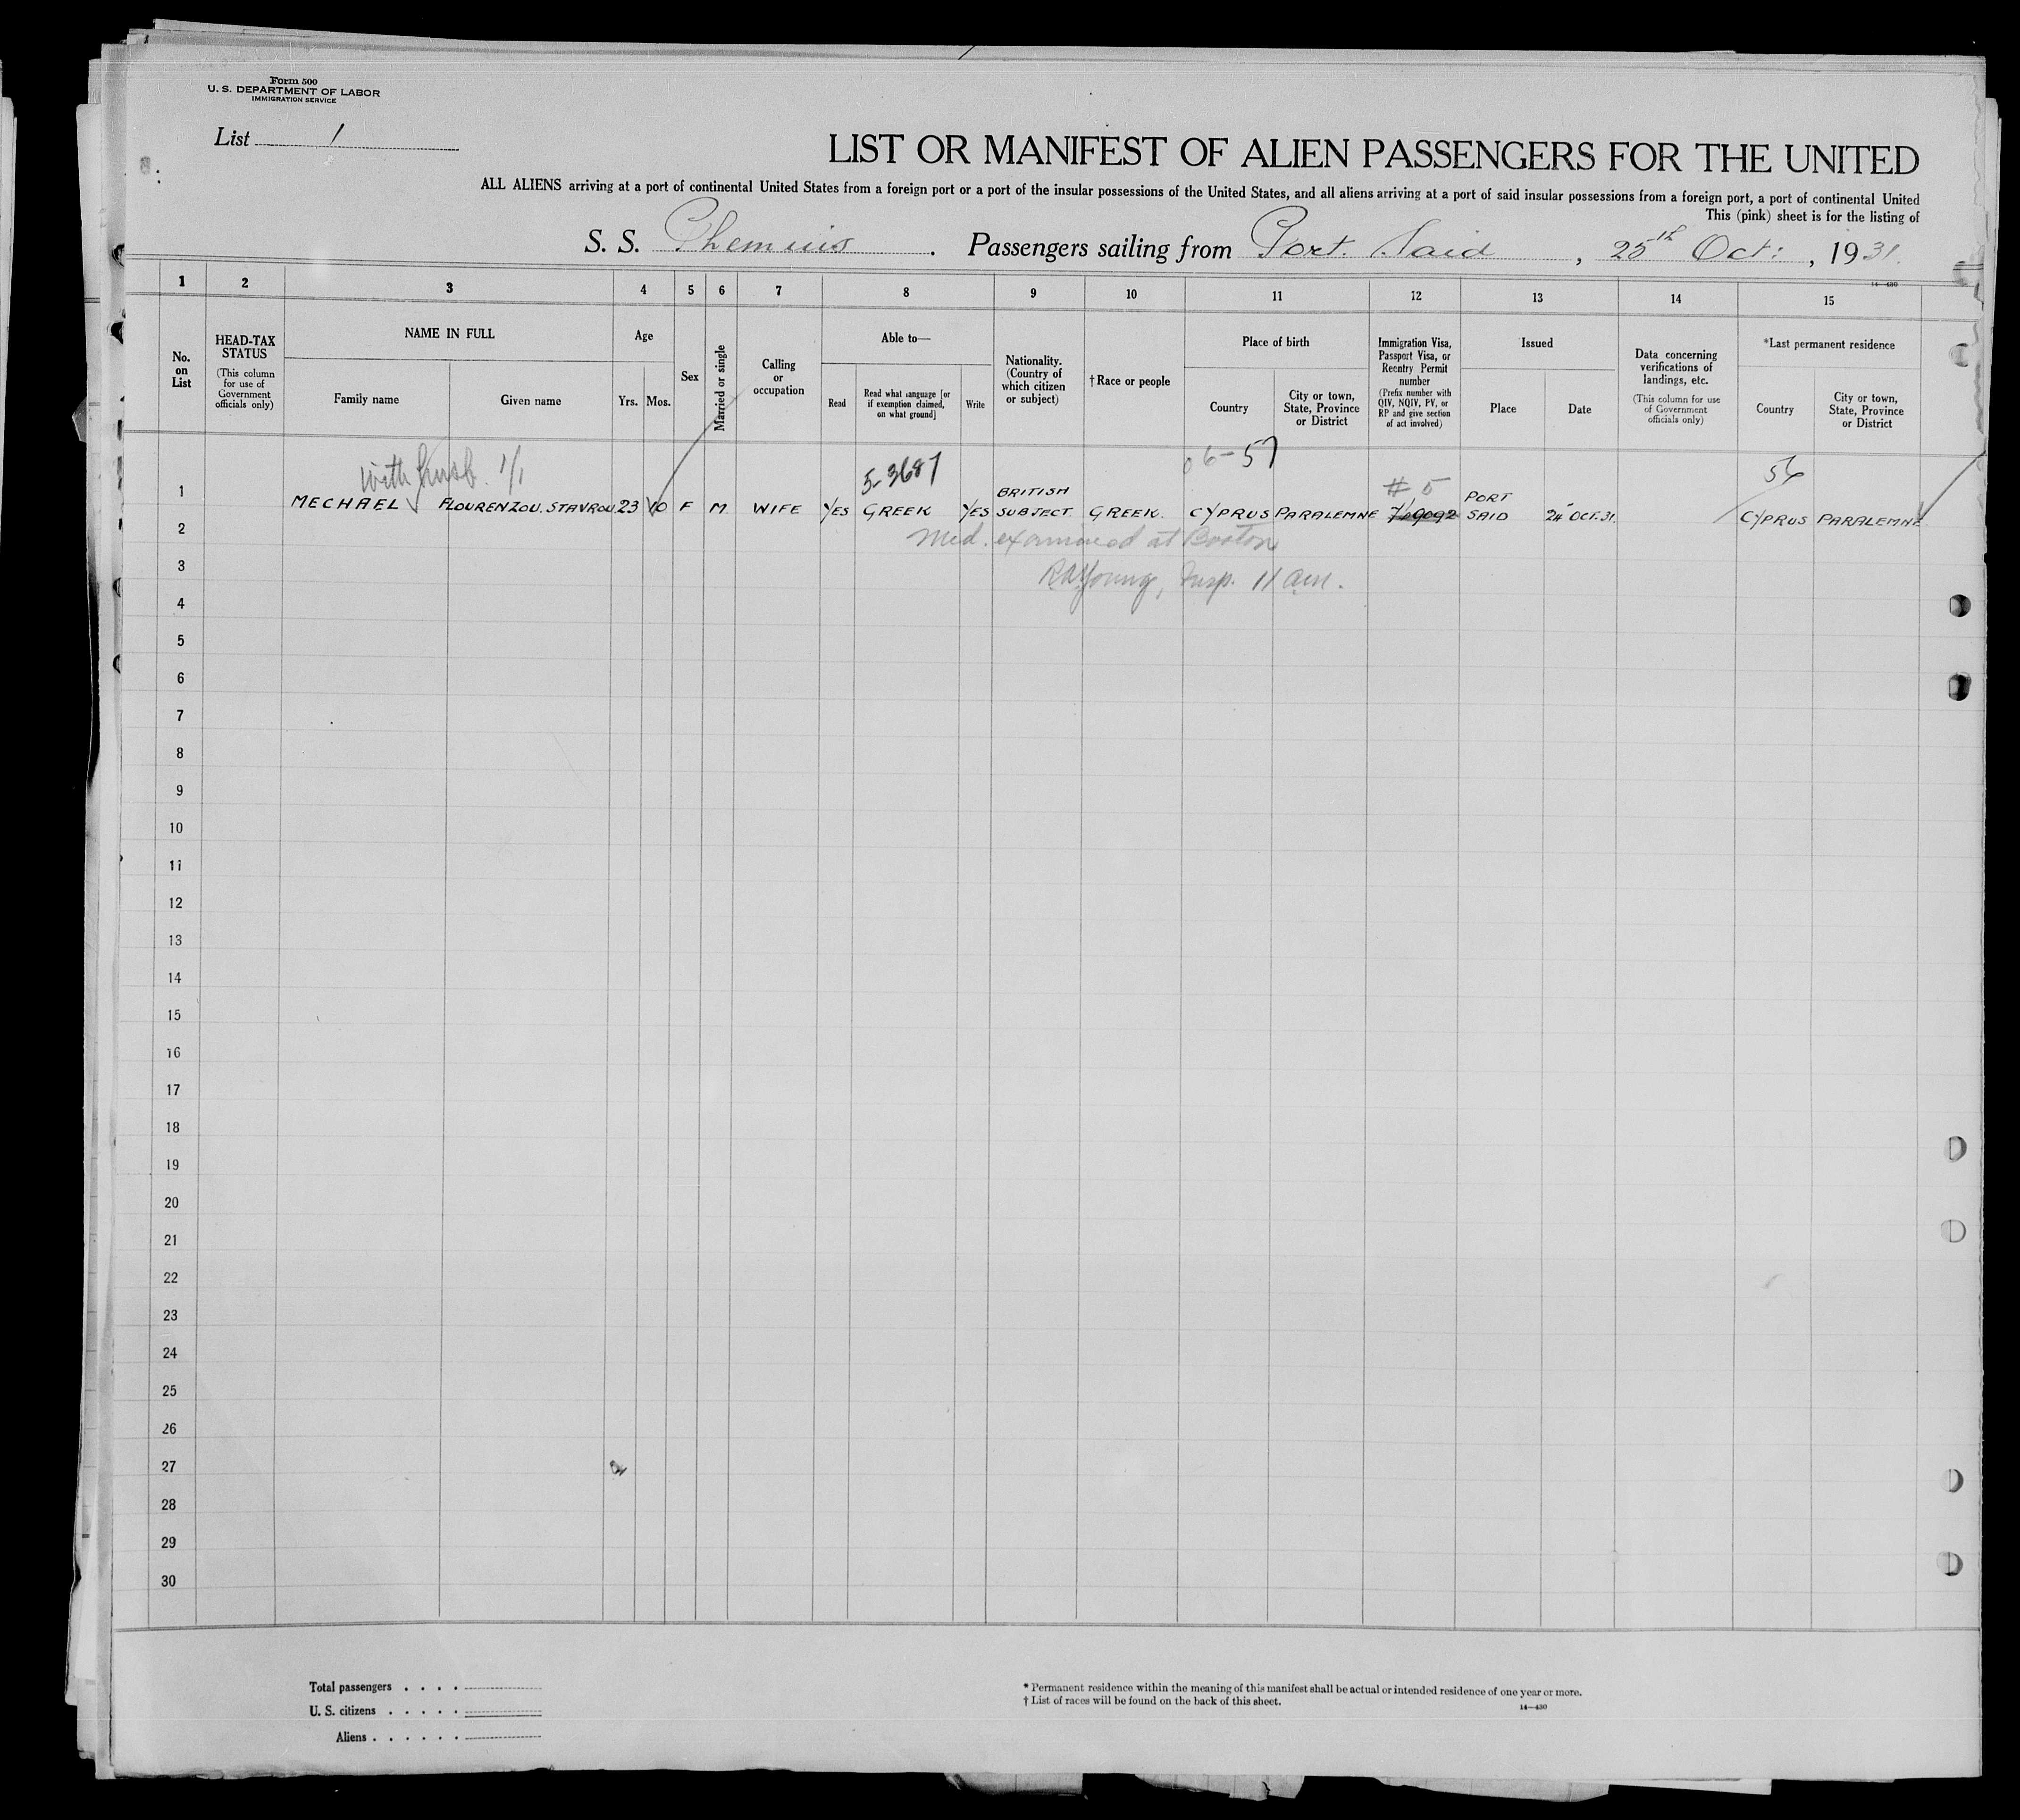 Form 500
U. S. DEPARTMENT OF LABOR
IMMIGRATION SERVICE
List 1
LIST OR MANIFEST OF ALIEN PASSENGERS FOR THE UNITED
ALL ALIENS arriving at a port of continental United States from a foreign port or a port of the insular possessions of the United States, and all aliens arriving at a port of said insular possessions from a foreign port, a port of continental United
This (pink) sheet is for the listing of
S. S. Chemnis. Passengers sailing from Port. Said, 25th Oct:, 1931.
14—430
1 2 3 4 5 6 7 8 9 10 11 12 13 14 15
No. on List
HEAD-TAX STATUS
(This column for use of Government officials only)
NAME IN FULL
Family name
Given name
Age
Yrs.
Mos.
Sex
Married or single
Calling or occupation
Able to—
Read
Read what language [or if exemption claimed, on what ground]
Write
Nationality. (Country of which citizen or subject)
†Race or people
Place of birth
Country
City or town, State, Province or District
Immigration Visa, Passport Visa, or Reentry Permit number
(Prefix number with QIV, NQIV, PV, or RP and give section of act involved)
Issued
Place
Date
Data concerning verifications of landings, etc.
(This column for use of Government officials only)
*Last permanent residence
Country
City or town, State, Province or District
with husb. 1/1
5-3687
06-57
# 5
56
1 MECHAEL FLOURENZOU. STAVROU 23 10 F M WIFE YES GREEK YES BRITISH SUBJECT GREEK. CYPRUS PARALEMNE PORT SAID 24" OCT. 31. CYPRUS PARALEMNE
2
Med. examined at Boston
3
RAYoung, Insp. 11 am.
4
5
6
7
8
9
10
11
12
13
14
15
16
17
18
19
20
21
22
23
24
25
26
27
28
29
30
Total passengers . . . .
U. S. citizens . . . . .
Aliens . . . . . .
* Permanent residence within the meaning of this manifest shall be actual or intended residence of one year or more.
† List of races will be found on the back of this sheet.
14—430